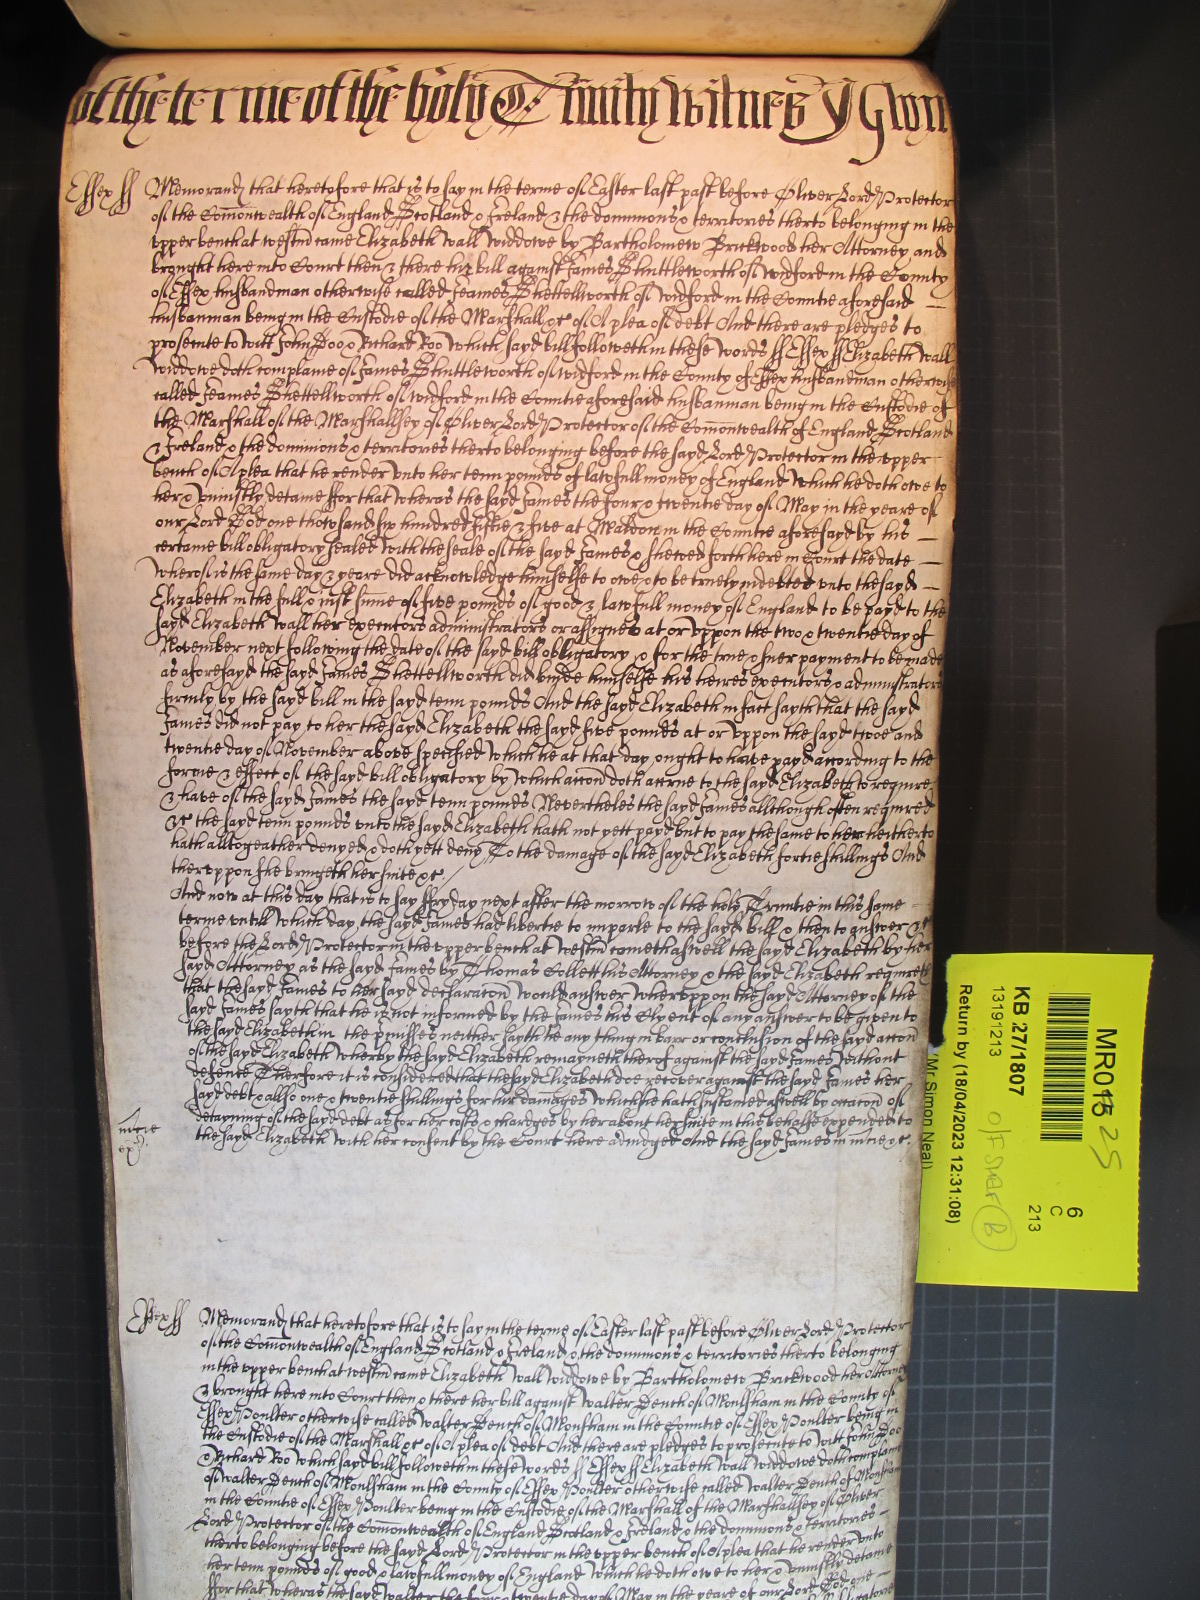 of the terme of the holy Trinity Witnes J Glyn
Essex ss Memorand that heretofore that is to say in the terme of Easter last past before Oliver Lord Protector
of the Comonwealth of England Scotland & Ireland & the dominions & territories therto belonging in the
upper bench at westm came Elizabeth Wall Widdowe by Bartholomew Brickwood her Attorney and
brought here into Court then & there her bill against James Shuttleworth of Widford in the County
of Essex husbandman otherwise called Jeames Shettellworth of Widford in the Countie aforesaid
husbanman being in the Custodie of the Marshall &c of A plea of debt And there are pledges to
prosecute to witt John Doo & Richard Roo Which sayd bill followeth in these words ss Essex ss Elizabeth Wall
Widdowe doth complaine of James Shuttleworth of Widford in the County of Essex husbandman otherwise
called Jeames Shettellworth of Widford in the Countie aforesaid husbanman being in the Custodie of
the Marshall of the Marshallsey of Oliver Lord Protector of the Comonwealth of England Scotland
& Ireland & the dominions & territories therto belonging before the sayd Lord Protector in the upper
bench of A plea that he render unto her tenn pounds of lawfull money of England Which he doth owe to
her & uniustly detaine ffor that wheras the sayd James the four & twentie day of May in the yeare of
our Lord God one thowsand six hundred fiftie & five at Maldon in the Countie aforesayd by his
certaine bill obligatory sealed with the seale of the sayd James & shewed forth here in Court the date
wherof is the same day & yeare did acknowledge himselfe to owe & to be truely indebted unto the sayd
Elizabeth in the full & iust sume of five pounds of good & lawfull money of England to be payd to the
sayd Elizabeth Wall her executors administrators or assignes at or uppon the two & twentie day of
November next following the date of the sayd bill obligatory & for the true & suer payment to be made
as aforesayd the sayd James Shettellworth did binde himselfe his heires executors & administrators
firmly by the sayd bill in the sayd tenn pounds And the sayd Elizabeth in fact sayth that the sayd
James did not pay to her the sayd Elizabeth the sayd five pounds at or uppon the sayd twoe and
twentie day of November above specified Which he at that day ought to have payd according to the
forme & effect of the sayd bill obligatory by Which accon doth accrue to the sayd Elizabeth to require
& have of the sayd James the sayd tenn pounds Nevertheles the sayd James allthough often required
&c the sayd tenn pounds unto the sayd Elizabeth hath not yett payd but to pay the same to her heitherto
hath alltogeather denyed & doth yett deny To the damage of the sayd Elizabeth fortie shillings And
theruppon she bringeth her suite &c
And now at this day that is to say ffryday next after the morrow of the holy Trinitie in this same
terme untill Which day the sayd James had libertie to imparle to the sayd bill & then to answer &c
before the Lord Protector in the upper bench at Westm cometh aswell the sayd Elizabeth by her
sayd Attorney as the sayd James by Thomas Collett his Attorney & the sayd Elizabeth requireth
that the sayd James to her sayd declaracon Would answer Wheruppon the sayd Attorney of the
sayd James sayth that he is not informed by the James his Clyent of any answer to be given to
the sayd Elizabeth in the pmisses neither sayth he any thing in barr or conclusion of the sayd accon
of the sayd Elizabeth Wherby the sayd Elizabeth remayneth therof against the sayd James Without
defence Therfore it is considered that the sayd Elizabeth doe recover against the sayd James her
sayd debt & allso one & twentie shillings for hir damages Which she hath sustained aswell by occacon of
detayning of the sayd debt as for her costs & chardges by her about her suite in this behalfe expended to
the sayd Elizabeth with her consent by the Court here adiudged And the sayd James in mcie &c
mcie
Essex ss Memorand that heretofore that is to say in the terme of Easter last past before Oliver Lord Protector
of the Comonwealth of England Scotland & Ireland & the dominions & territories therto belonging
in the upper bench at westm came Elizabeth Wall Widdowe by Bartholomew Brickwood her Attorney
& brought here into Court then & there her bill against Walter Dench of Moulsham in the County of
Essex Poulter otherwise called Walter Dench of Moulsham in the Countie of Essex Poulter being in
the Custodie of the Marshall &c of A plea of debt And there are pledges to prosecute to witt John Doo
& Richard Roo Which sayd bill followeth in these words ss Essex ss Elizabeth Wall Widdowe doth complaine
of Walter Dench of Moulsham in the County of Essex Poulter otherwise called Walter Dench of Moulsham
in the Countie of Essex Poulter being in the Custodie of the Marshall of the Marshallsey of Oliver
Lord Protector of the Comonwealth of England Scotland & Ireland & the dominions & territories
therto belonging before the sayd Lord Protector in the upper bench of A plea that he render unto
her tenn pounds of good & lawfull money of England Which he doth owe to her & uniustly detaine
ffor that wheras the sayd Walter the four & twentie day of May in the yeare of our Lord God one
MR015 25
6
C
213
KB 27/1807
13191213
O/F SHELF (B)
Return by (18/04/2023 12:31:08)
(Mr Simon Neal)